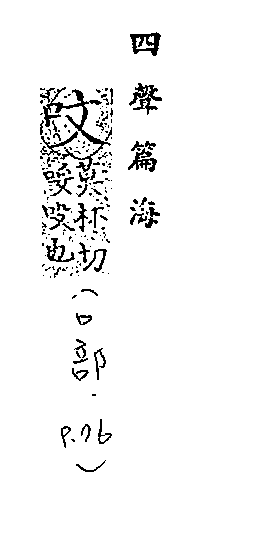 四聲篇海
呅
莫杯切
也
（口部．P.76）